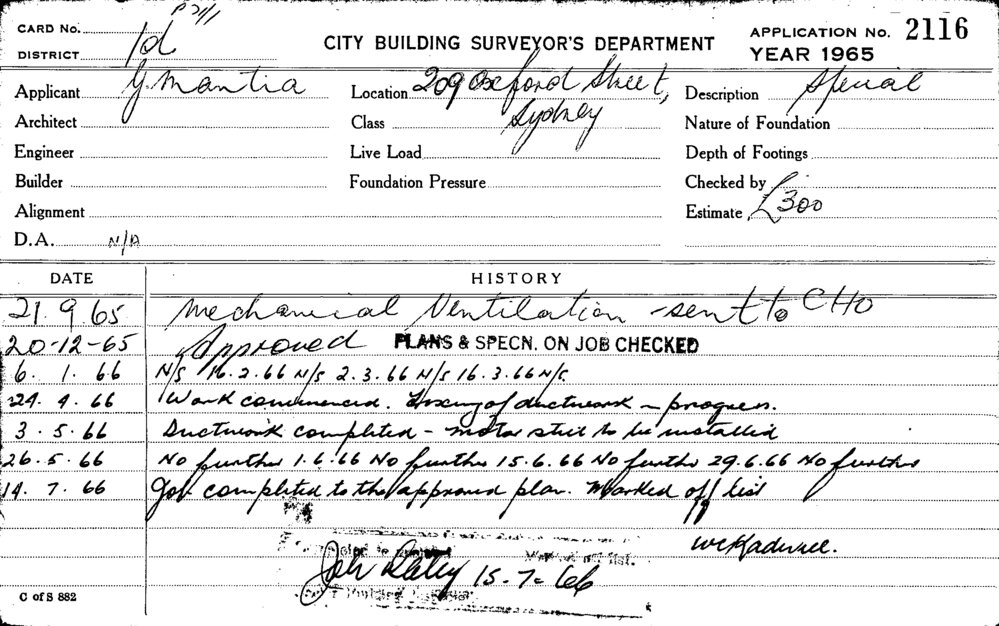 CARD No.
DISTRICT 1d
CITY BUILDING SURVEYOR'S DEPARTMENT
APPLICATION No. 2116
YEAR 1965
Applicant G. Mantia
Location 209 Oxford Street,
Sydney
Description Special
Architect
Class
Nature of Foundation
Engineer
Live Load
Depth of Footings
Builder
Foundation Pressure
Checked by
Alignment
Estimate £300
D.A. N/A
DATE HISTORY
21.9.65 Mechanical Ventilation - sent to CHO
20-12-65 Approved PLANS & SPECN. ON JOB CHECKED
6. 1. 66 N/S 16.2.66 N/S 2.3.66 N/S 16.3.66 N/S.
24. 4. 66 Work commenced. Fixing of ductwork in progress.
3. 5. 66 Ductwork completed - motor still to be installed
26. 5. 66 No further 1.6.66 No further 15.6.66 No further 29.6.66 No further
14. 7. 66 Job completed to the approved plan. Marked off list
15-7-66
C of S 882